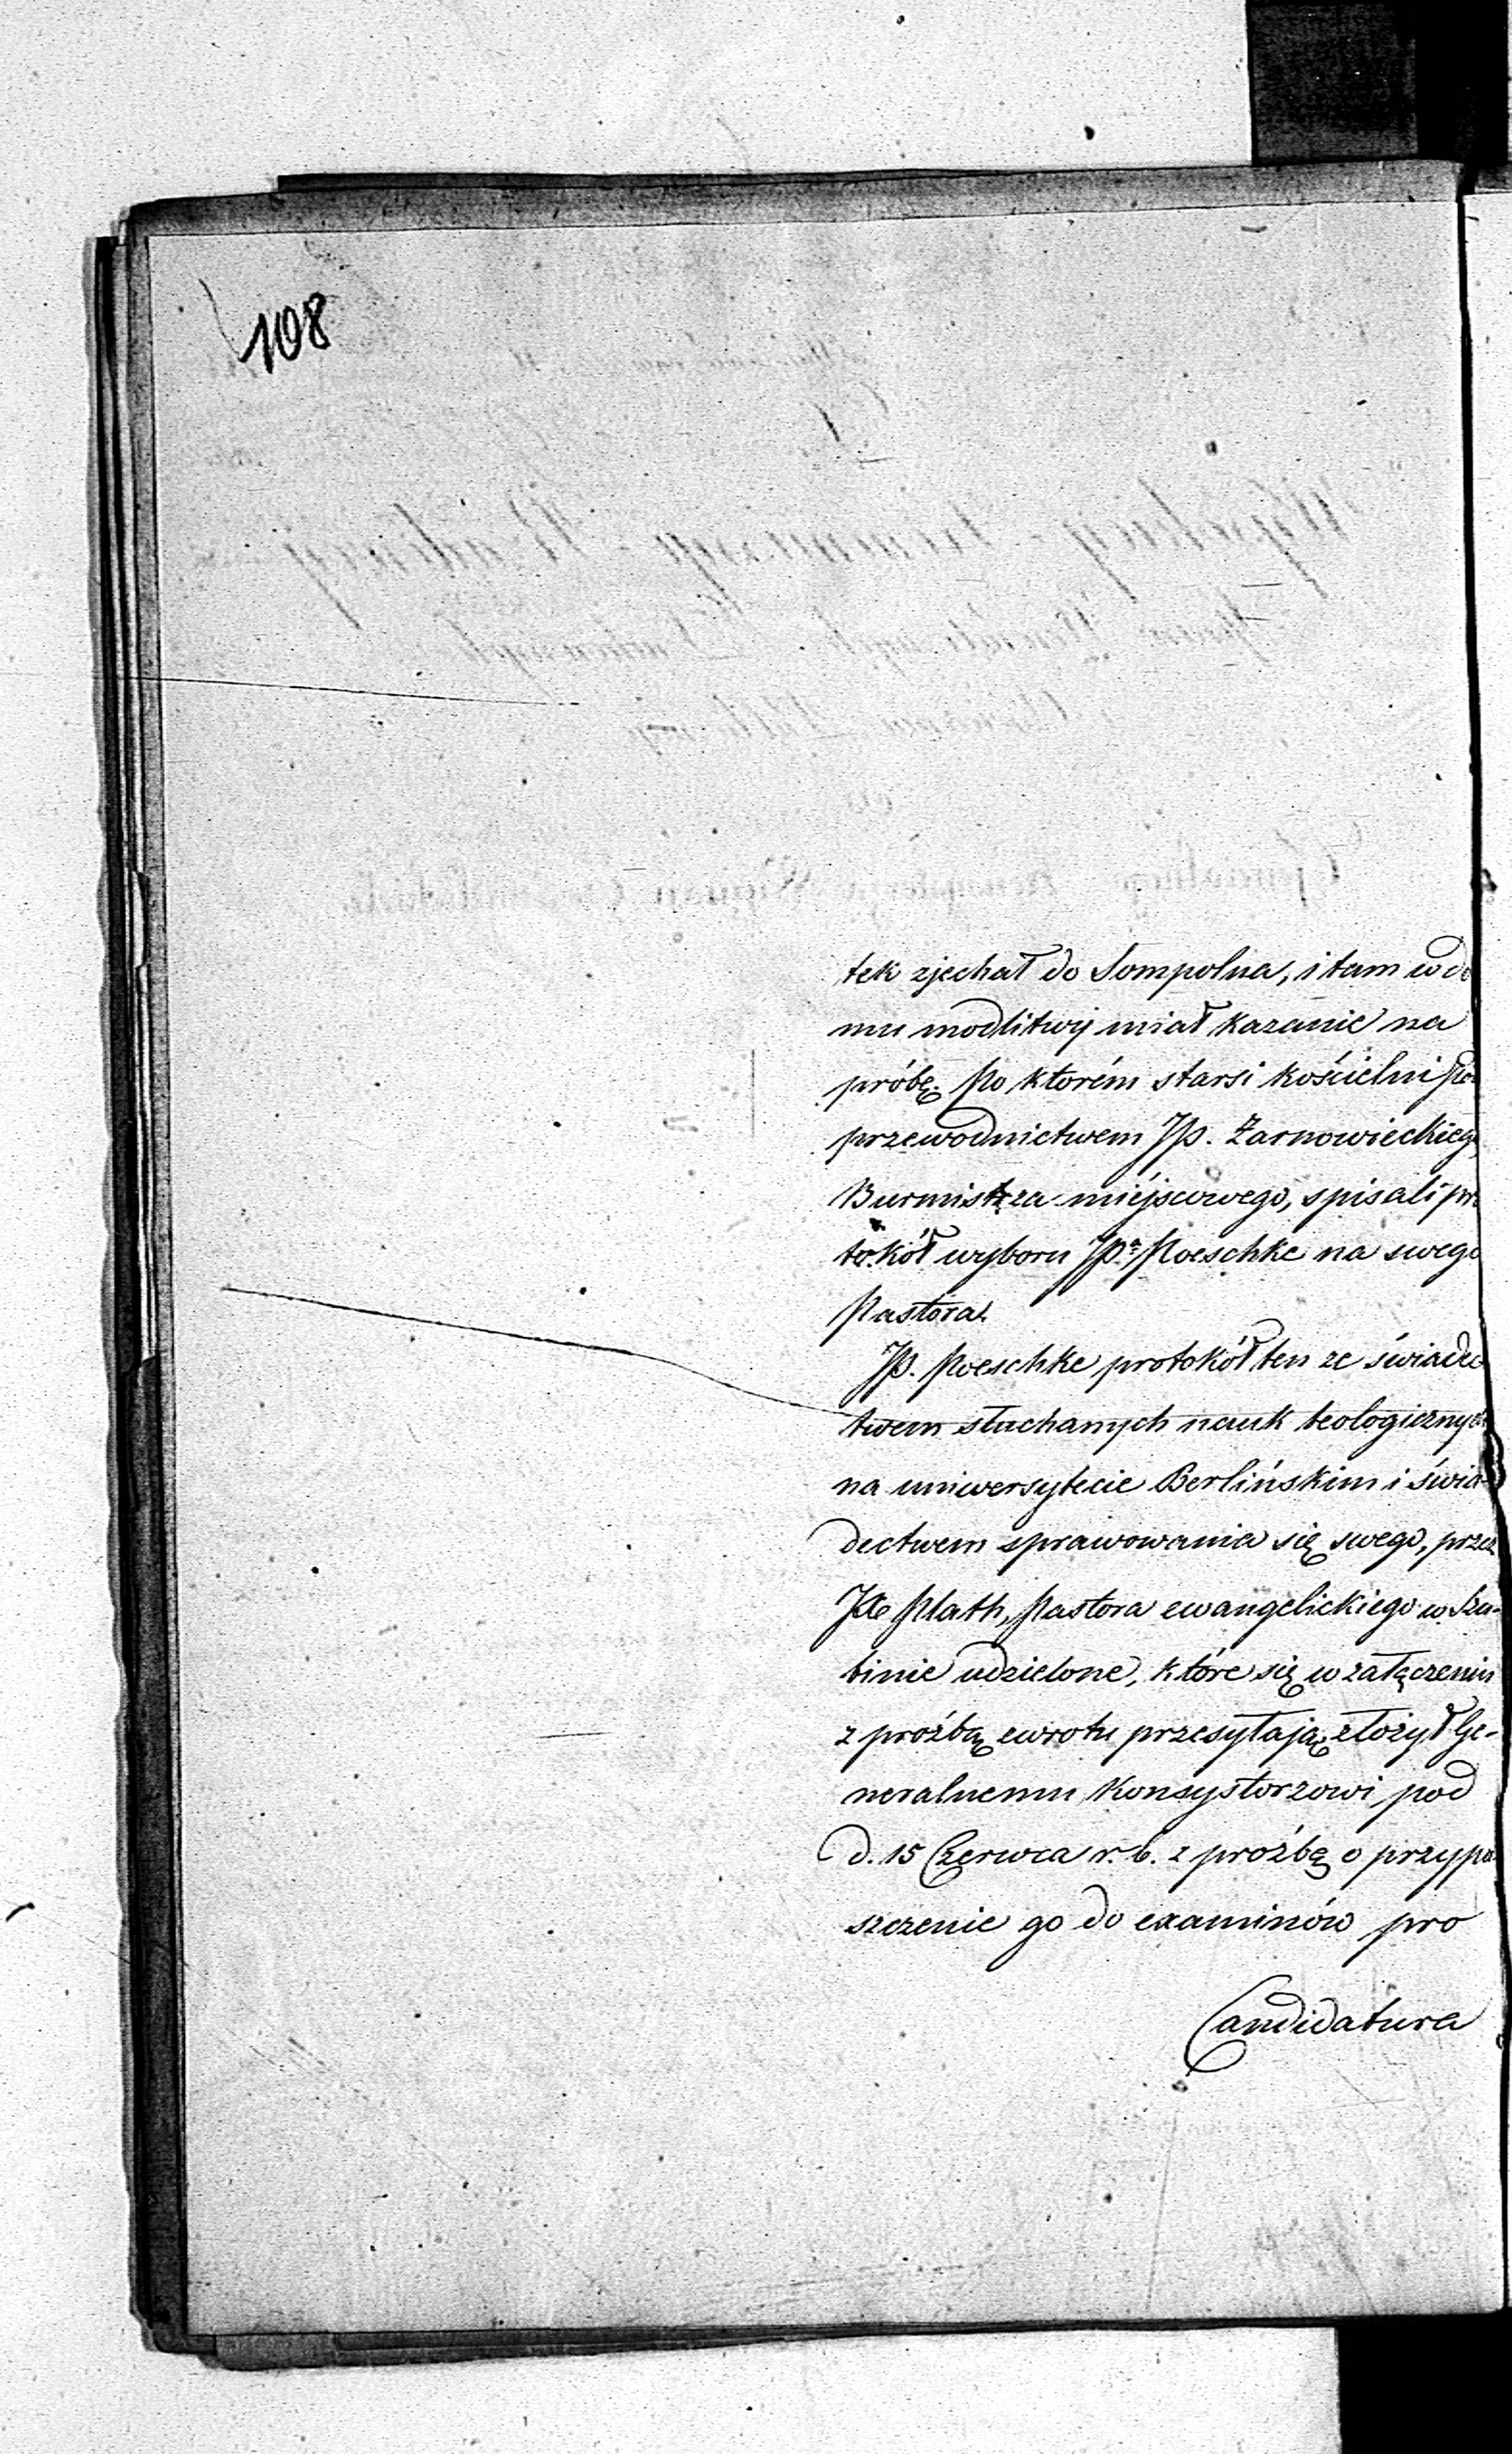 108
tek zjechał do Sompolna, i tam w do
mu modlitwy miał kazanie na
próbę. Po którém starsi kościelni po
przewodnictwem JP. Żarnowieckiego
Burmistrza miéjscowego, spisali pro
tokół wyboru JPª Poeschke na swego
Pastora.
JP. Poeschke protokół ten ze świadec
twem słuchanych nauk teologicznych
na uniwersytecie Berlińskim i świa-
dectwem sprawowania się swego, przez
JX Plath, Pastora ewangelickiego w Szu-
binie udzielone, które się w załączeniu
z proźbą zwrotu przesyłają, złożył Ge-
neralnemu Konsystorzowi pod
d. 15 Czerwca r. b. z proźbą o przypu
szczenie go do examinów pro
Candidatura